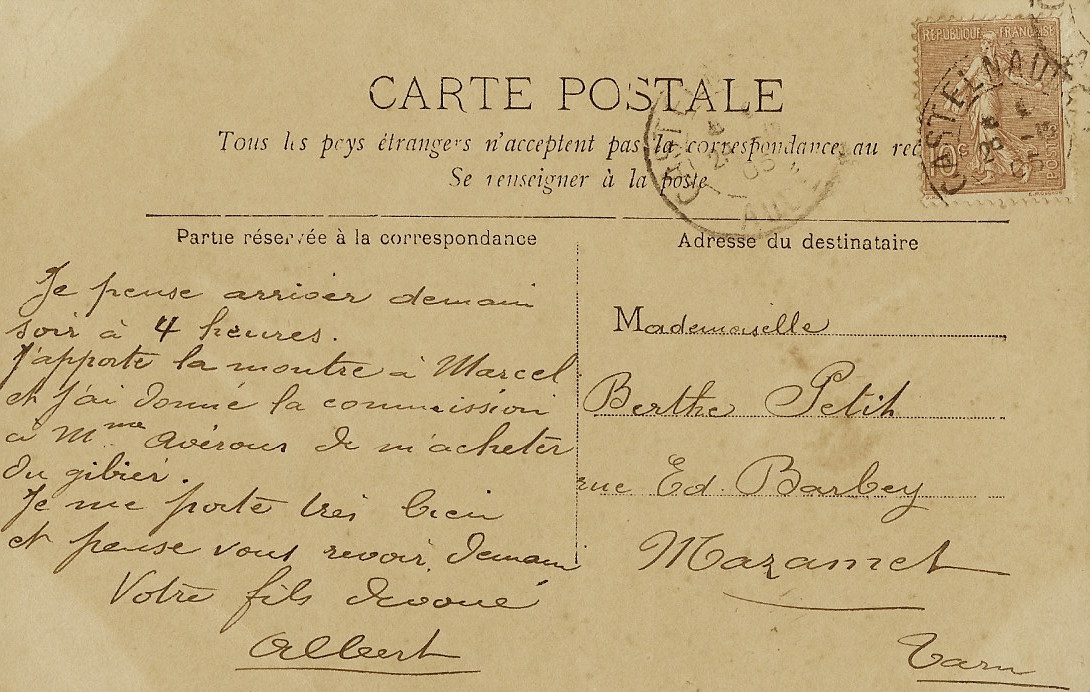 CARTE POSTALE
RÉPUBLIQUE FRANÇAISE
10 c POSTES
CASTELNAU
Tous les pays étrangers n'acceptent pas la correspondance au
Se renseigner à la poste
Partie réservée à la correspondance
Je pense arriver demain
soir à 4 heures.
J'apporte la montre à Marcel
et j'ai donné la commission
à Mme Avérous de m'acheter
du gibier.
Je me porte très bien
et pense vous revoir demain
Votre fils devoué
Albert
Adresse du destinataire
Mademoiselle
Berthe Petit
rue Ed. Barbey
Mazamet
Tarn